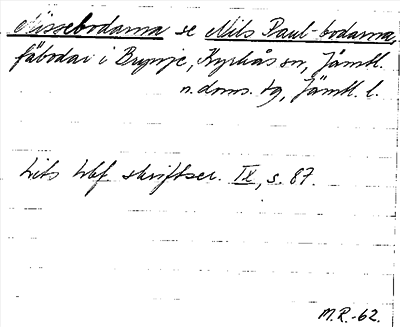 Nissebodarna se Nils Paul-bodarna,
fäbodar i Brynje, Kyrkås sn, Jämtl.
n. doms. tg, Jämtl. l.
Lits hbf skriftser. IX, s. 87.
M.R.-62.